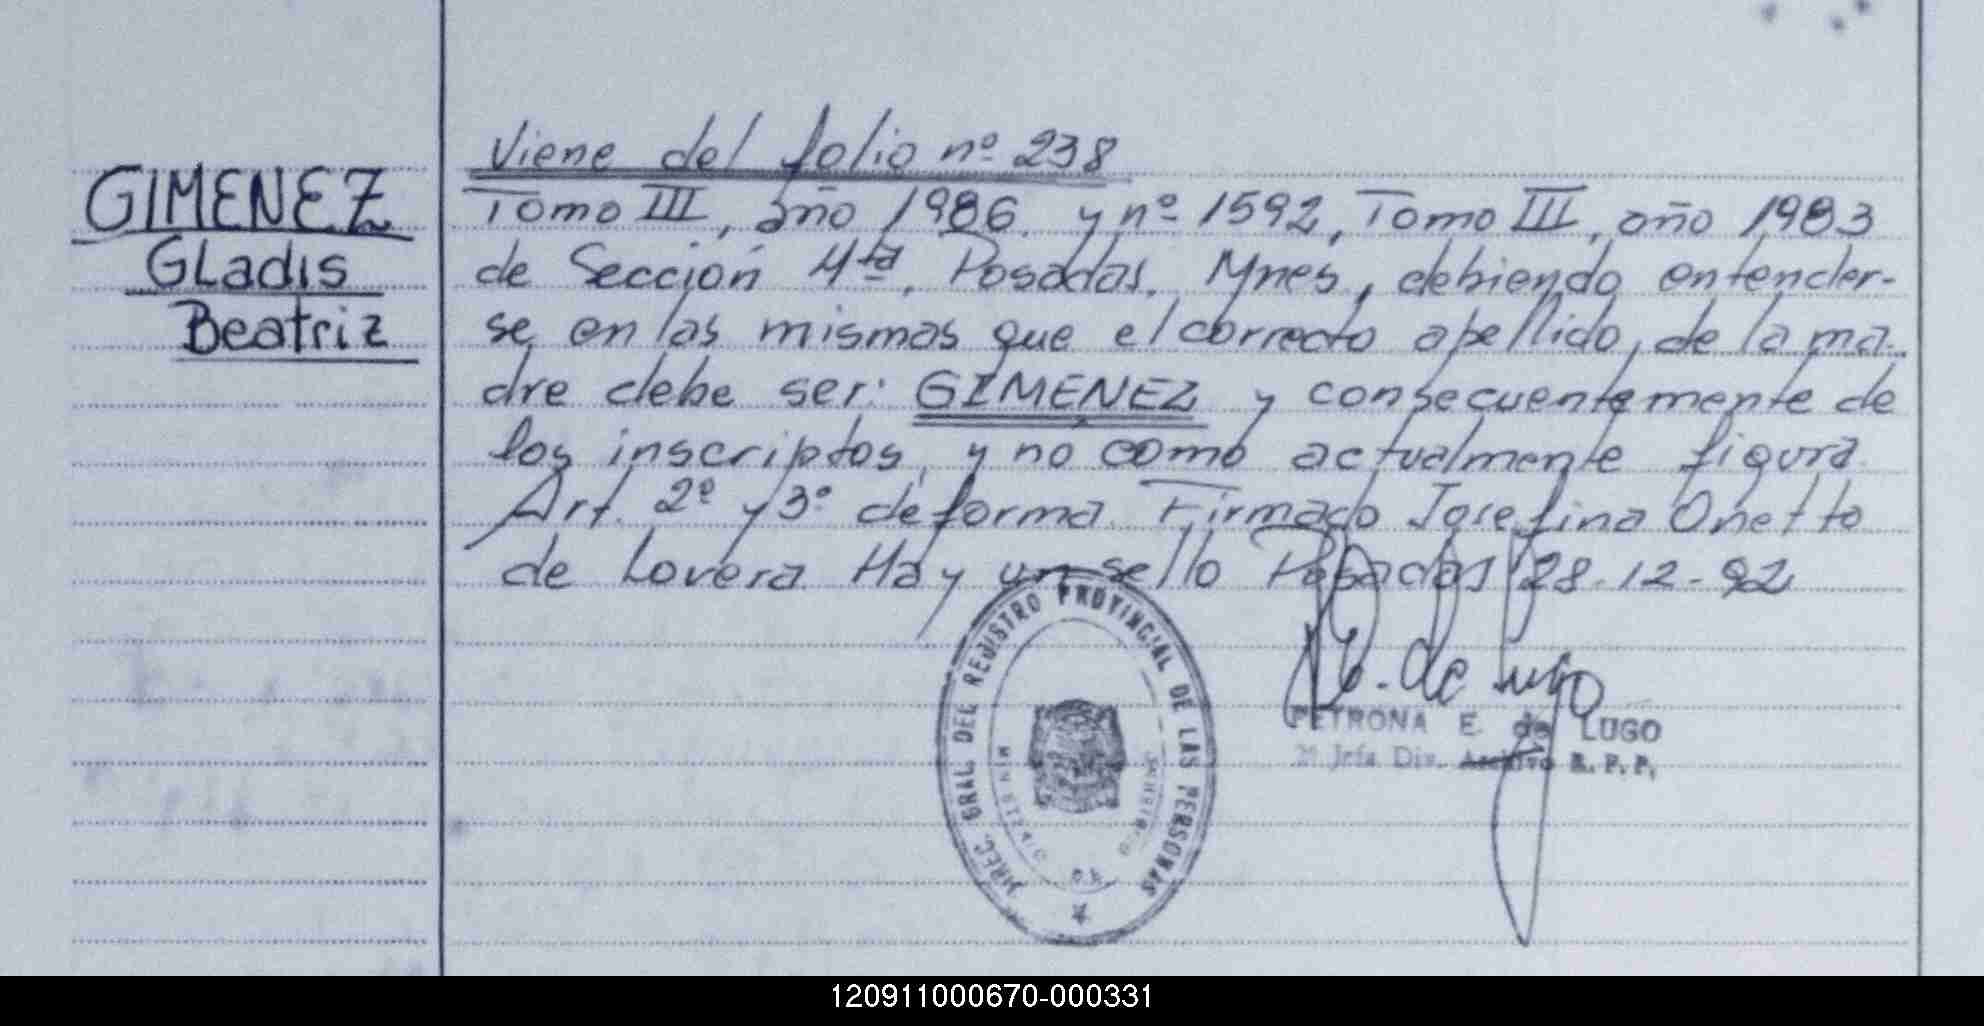 GIMENEZ
GLadis
Beatriz
Viene del folio nº 238
Tomo III, año 1986. y nº 1592, Tomo III, año 1983
de Sección 4ta. Posadas. Mnes, debiendo entender-
se en las mismas que el correcto apellido, de la ma-
dre debe ser: GIMENEZ y consecuentemente de
los inscriptos, y no como actualmente figura.
Art. 2º y 3º de forma. Firmado Josefina Onetto
de Lovera Hay un sello Posadas 28-12-92
DIREC. GRAL DEL REJISTRO PROVINCIAL DE LAS PERSONAS
MINISTERIO DE GOBIERNO
de Lugo
PETRONA E. de LUGO
2º Jefa Div. Archivo R. P. P.
120911000670-000331